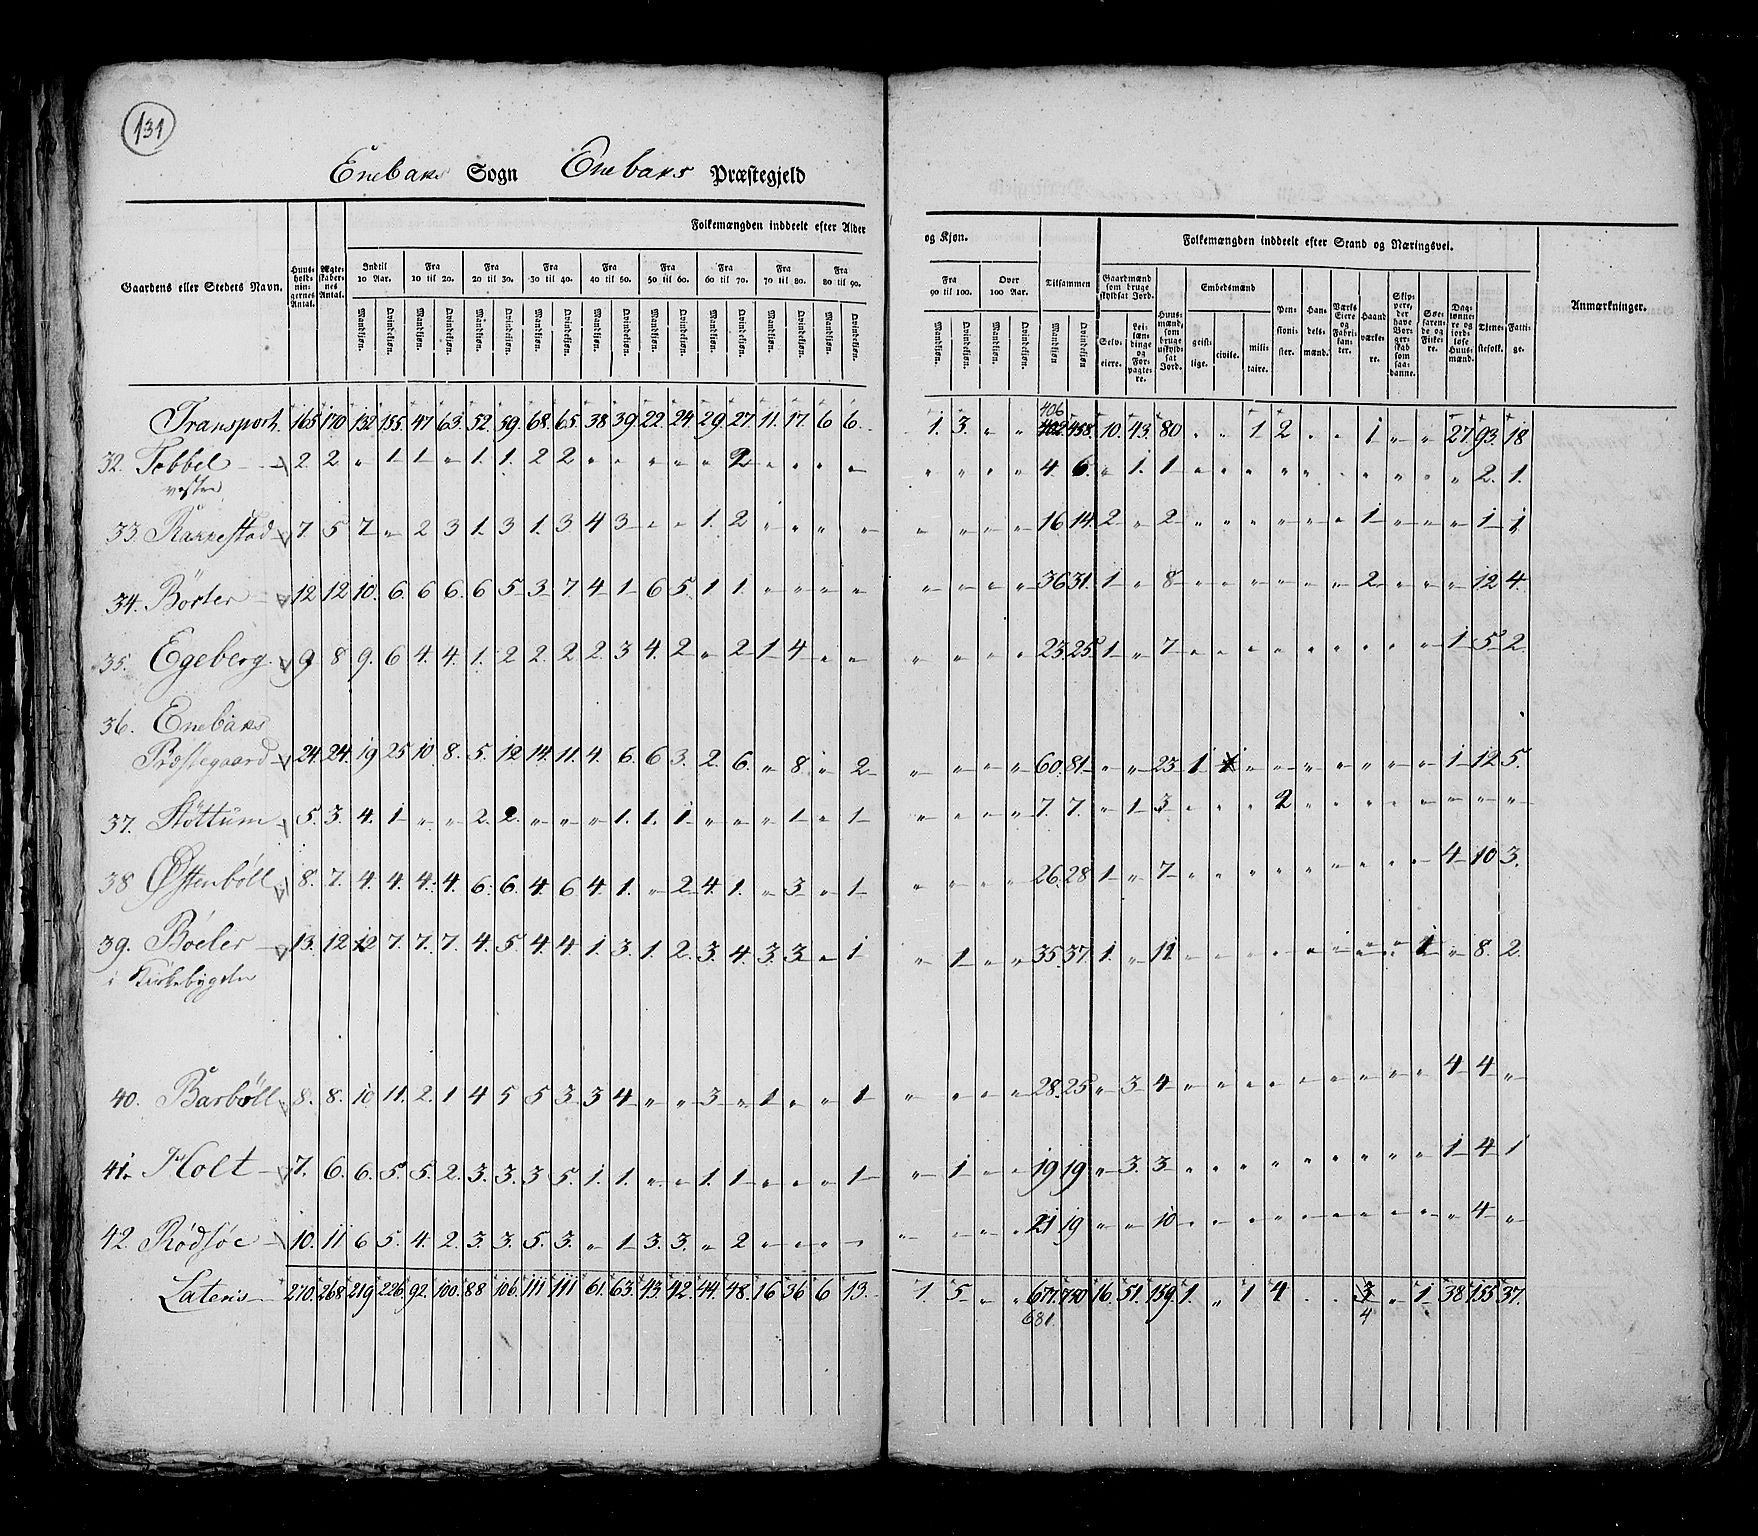 131
Enebaks Sogn Enebaks Præstegjeld
Folkemængden inddeelt efter Alder og Kjøn.
Folkemængden inddeelt efter Stand og Næringsvei.
Gaardens eller Stedets Navn.
Huusholdningernes Antal.
Ægteskabernes Antal.
Indtil 10 Aar.
Fra 10 til 20.
Fra 20 til 30.
Fra 30 til 40.
Fra 40 til 50.
Fra 50 til 60.
Fra 60 til 70.
Fra 70 til 80.
Fra 80 til 90.
Fra 90 til 100.
Over 100 Aar.
Tilsammen
Gaardmænd som bruge skyldsat Jord.
Huusmænd, som bruge uskyldsat Jord.
Embedsmænd
Pensionister.
Handelsmænd.
Værks Eiere og Fabrikanter.
Haandværkere.
Skippere, der have Borgerskab som saadanne.
Søefarende og Fiskere.
Daglønnere og jordløse Huusmænd.
Tienestefolk.
Fattige.
Anmærkninger.
Mandkiøn. Qvindekiøn. Mandkiøn. Qvindekiøn. Mandkiøn. Qvindekiøn. Mandkiøn. Qvindekiøn. Mandkiøn. Qvindekiøn. Mandkiøn. Qvindekiøn. Mandkiøn. Qvindekiøn. Mandkiøn. Qvindekiøn. Mandkiøn. Qvindekiøn. Mandkiøn. Qvindekiøn. Mandkiøn. Qvindekiøn. Mandkiøn Qvindekiøn
Selveiere. Leilændinge og Forpagtere. geistlige. civile. militaire.
406
Transport. 165 170 132 155 47 63 52 59 68 65 38 39 22 24 29 27 11 17 6 6 1 3 „ „ 402 455 10 43 80 „ „ 1 2 „ „ 1 „ „ 27 93 18
32. Tobbel 2 2 „ 1 1 „ 1 1 2 2 „ „ „ „ „ 2 „ „ „ „ „ „ „ „ 4 6 „ 1 1 „ „ „ „ „ „ „ „ „ „ 2 1
vestre
33. 7 5 7 „ 2 3 1 3 1 3 4 3 „ „ 1 2 „ „ „ „ „ „ „ „ 16 14 2 „ 2 „ „ „ „ „ „ 1 „ „ „ 1 1
34. Börter 12 12 10 6 6 6 6 5 3 7 4 1 6 5 1 1 „ „ „ „ „ „ „ „ 36 31 1 „ 8 „ „ „ „ „ „ 2 „ „ „ 12 4
35. Egeberg 9 8 9 6 4 4 1 2 2 2 2 3 4 2 „ 2 1 4 „ „ „ „ „ „ 23 25 1 „ 7 „ „ „ „ „ „ „ „ „ 1 5 2
36. Enebaks
Præstegaard 24 24 19 25 10 8 5 12 14 11 4 6 6 3 2 6 „ 8 „ 2 „ „ „ „ 60 81 „ „ 23 1 „ „ „ „ „ „ „ 1 12 5
37. Stöttum 5 3 4 1 „ „ 2 2 „ „ „ 1 1 1 „ „ „ 1 „ 1 „ „ „ „ 7 7 „ 1 3 „ „ „ 2 „ „ „ „ „ „ „ „
38 Østenböll 8 7 4 4 4 4 6 6 4 6 4 1 „ 2 4 1 „ 3 „ 1 „ „ „ „ 26 28 1 „ 7 „ „ „ „ „ „ „ „ „ 4 10 3
39. Böeler 13 12 12 7 7 7 4 5 4 4 1 3 1 2 3 4 3 3 „ 1 „ 1 „ „ 35 37 1 „ 11 „ „ „ „ „ „ „ „ 1 „ 8 2
i Kirkebygden
40. Barböll 8 8 10 11 2 1 4 5 5 3 3 4 „ „ 3 „ 1 „ „ 1 „ „ „ „ 28 25 „ 3 4 „ „ „ „ „ „ „ „ „ 4 4 „
41. Holt 7 6 6 5 5 2 3 3 3 5 1 1 „ „ 1 1 „ „ „ 1 „ 1 „ „ 19 19 „ 3 3 „ „ „ „ „ „ „ „ „ 1 4 1
42. Rödsöe 10 11 6 5 4 2 3 3 5 3 „ 1 3 3 „ 2 „ „ „ „ „ „ „ „ 21 19 „ „ 10 „ „ „ „ „ „ „ „ „ „ 4 „
Lateris 270 268 219 226 92 100 88 106 111 111 61 63 43 42 44 48 16 36 6 13 1 5 „ „ 677 750 16 51 159 1 „ 1 4 „ „ 3 „ 1 38 155 37
681 4